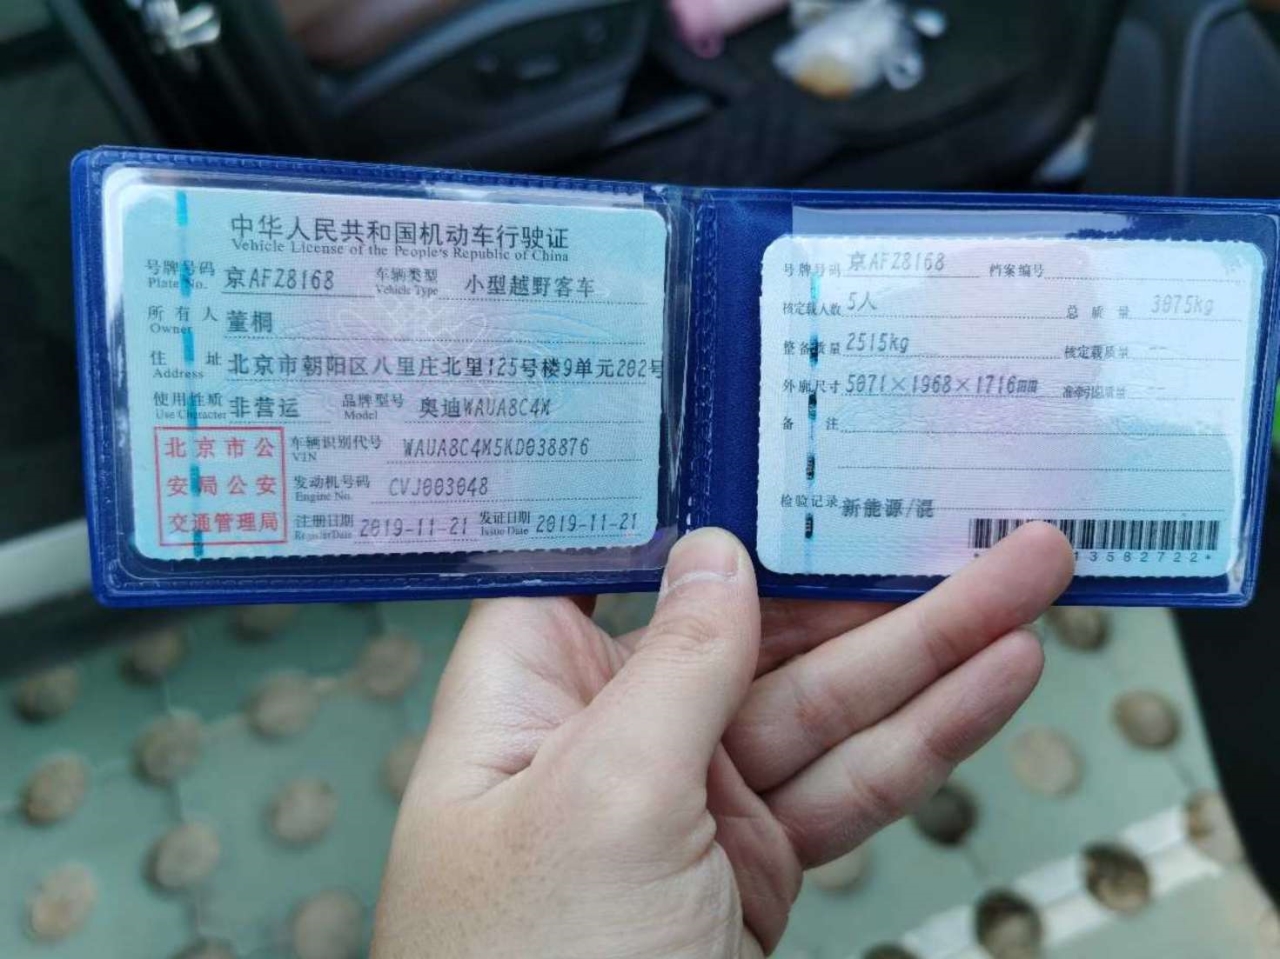 中华人民共和国机动车行驶证
Vehicle License of the People's Republic of China
号牌号码 京AFZ8168 车辆类型 小型越野客车
Plate No. Vehicle Type
所有人 董桐
Owner
住址 北京市朝阳区八里庄北里125号楼9单元202号
Address
使用性质 非营运 品牌型号 奥迪WAUA8C4M
Use Character Model
北京市公
安局公安
交通管理局
车辆识别代号 WAUA8C4M5KD038876
VIN
发动机号码 CVJ003048
Engine No.
注册日期 2019-11-21 发证日期 2019-11-21
Register Date Issue Date
号牌号码 京AFZ8168 档案编号
核定载人数 5人 总质量 3075kg
整备质量 2515kg 核定载质量 --
外廓尺寸 5071×1968×1716mm 准牵引总质量 --
备注
检验记录 新能源/混
13582722*